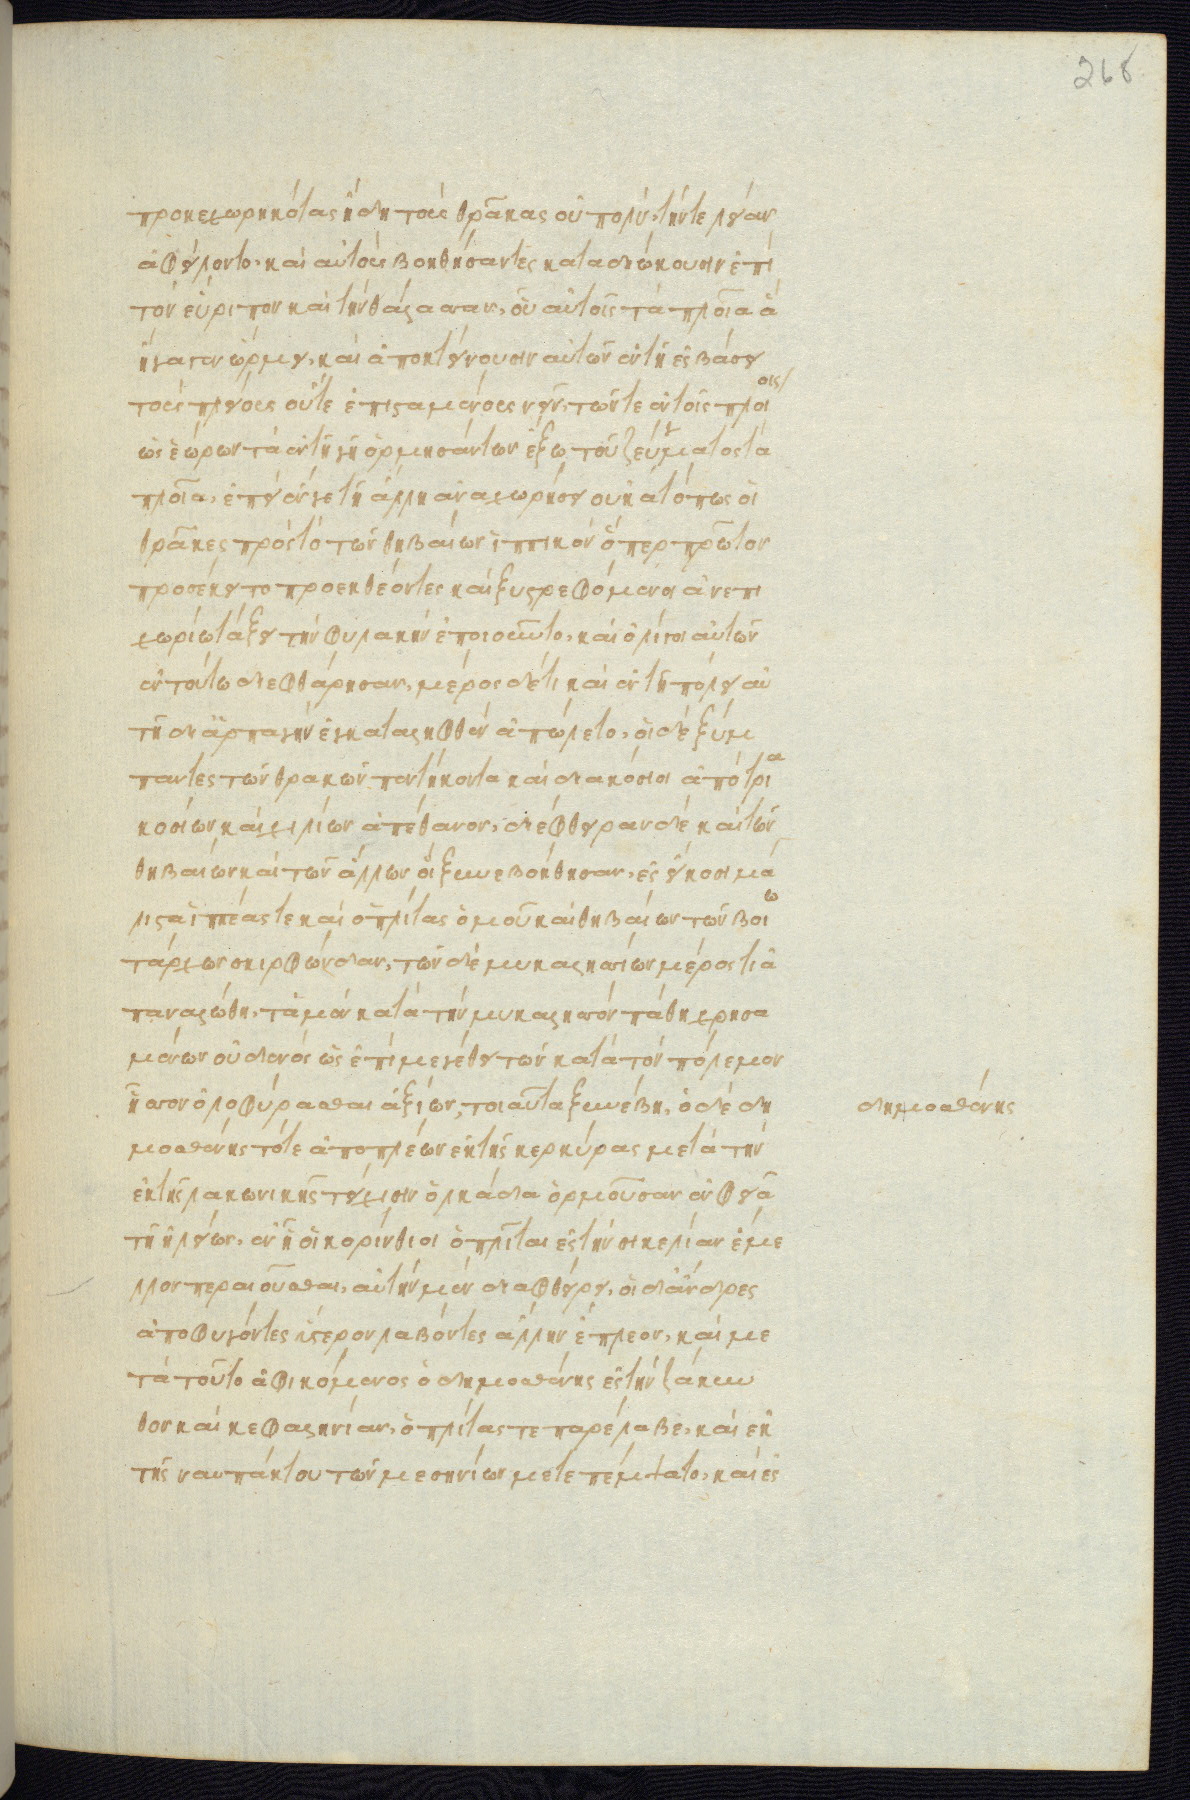 268
προκεχωρηκότας ἤδη τοὺς θρᾶκας οὐ πολύ, τήν τε λείαν
ἀφείλοντο, καὶ αὐτοὺς βοηθήσαντες καταδιώκουσιν ἐπὶ
τὸν εὔριπον καὶ τὴν θάλασσαν, οὗ αὐτοῖς τὰ πλοῖα ἃ
ἤγαγεν ὥρμει, καὶ ἀποκτείνουσιν αὐτῶν ἐν τῇ ἐσβάσει
τοὺς πλείους οὔτε ἐπισταμένους νεῖν, τῶν τε ἐν τοῖς πλοίοις
ὡς ἑώρων τὰ ἐν τῇ γῇ ὁρμησάντων ἔξω τοῦ ζεύγματος τὰ
πλοῖα, ἐπεὶ ἔν γε τῇ ἄλλῃ ἀναχωρήσει οὐκ ἀτόπως οἱ
θρᾶκες πρὸς τὸ τῶν θηβαίων ἱππικὸν ὅπερ πρῶτον
προσέκειτο προεκθέοντες καὶ ξυστρεφόμενοι ἐν ἐπι
χωρίω τάξει τὴν φυλακὴν ἐποιοῦντο, καὶ ὀλίγοι αὐτῶν
ἐν τούτω διεφθάρησαν, μέρος δέ τι καὶ ἐν τῇ πόλει αὐ
τῇ δι ἁρπαγὴν ἐγκαταληφθὲν ἀπώλετο, οἱ δὲ ξύμ
παντες τῶν θρακῶν πεντήκοντα καὶ διακόσιοι ἀπὸ τρια
κοσίων καὶ χιλίων ἀπέθανον, διέφθειραν δὲ καὶ τῶν
θηβαίων καὶ τῶν ἄλλων οἳ ξυνεβοήθησαν, ἐς εἴκοσι μά
λιστα ἱππέας τε καὶ ὁπλίτας ὁμοῦ καὶ θηβαίων τῶν βοιω
τάρχων σκιρφώνδαν, τῶν δὲ μυκαλησσίων μέρος τι ἀ
παναλώθη, τὰ μὲν κατὰ τὴν μυκαλησσὸν πάθη χρησα
μένων οὐδενὸς ὡς ἐπὶ μεγέθει τῶν κατὰ τὸν πόλεμον
ἧσσον ὀλοφύρασθαι ἀξίων, τοιαῦτα ξυνέβη, ὁ δὲ δη
μοσθένης τότε ἀποπλέων ἐκ τῆς κερκύρας μετὰ τὴν
ἐκ τῆς λακωνικῆς τείχισιν ὁλκάδα ὁρμοῦσαν ἐν φειᾶ
τῇ ἠλείων, ἐν ᾗ οἱ κορίνθιοι ὁπλῖται ἐς τὴν σικελίαν ἔμε
λλον περαιοῦσθαι, αὐτὴν μὲν διαφθείρει, οἱ δ ἄνδρες
ἀποφυγόντες ὕστερον λαβόντες ἄλλην ἔπλεον, καὶ με
τὰ τοῦτο ἀφικόμενος ὁ δημοσθένης ἐς τὴν ζάκυν
θον καὶ κεφαλληνίαν, ὁπλίτας τε παρέλαβε, καὶ ἐκ
τῆς ναυπάκτου τῶν μεσηνίων μετεπέμψατο, καὶ ἐς
δημοσθένης